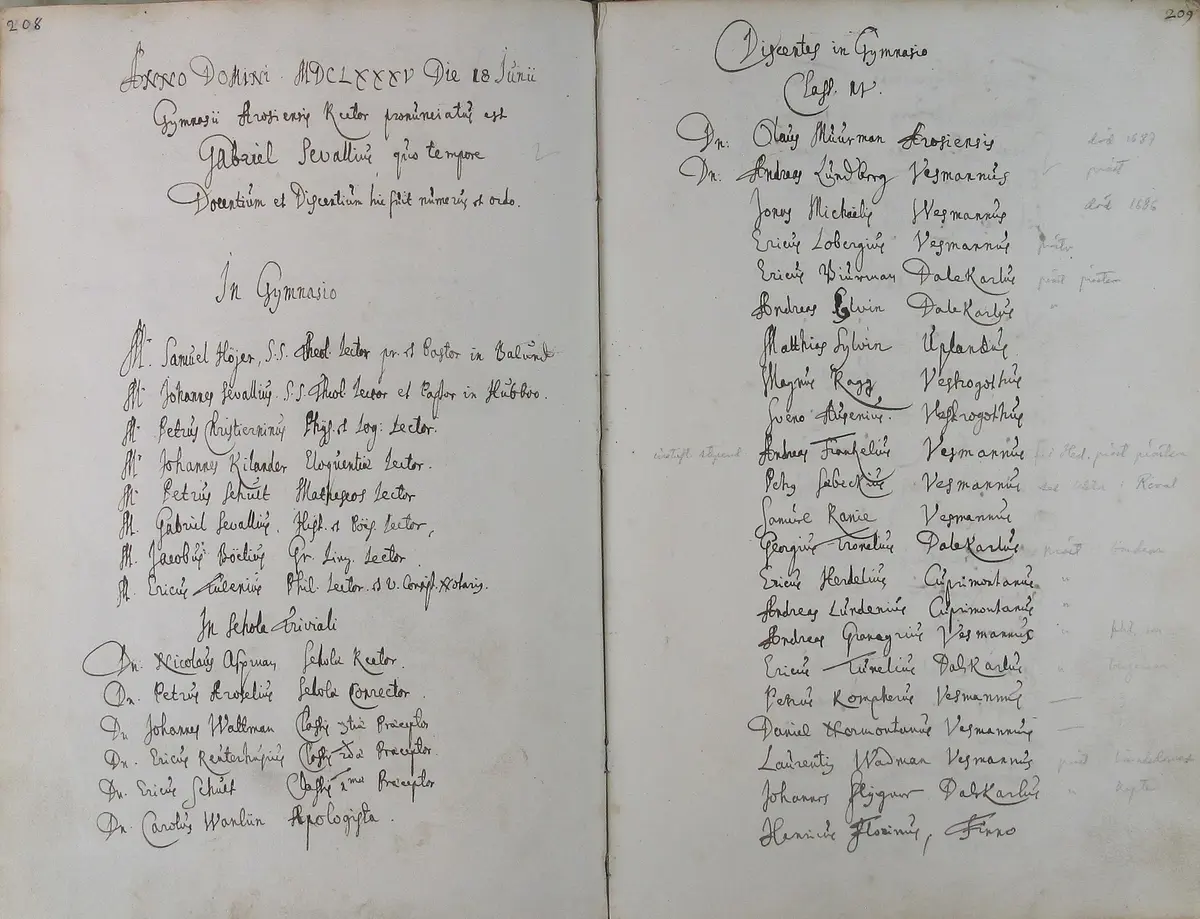 208
ANNO DOMINI MDCLXXXV Die 18 Junii
Gymnasii Arosiensis Rector pronunciatus est
Gabriel Sevallius quo tempore
Docentium et Discentium hic fuit numerus et ordo.
In Gymnasio
M. Samuel Höjer, S.S. Theol. Lector pr. et Pastor in Balund
M. Johannes Sevallius. S.S. Theol. Lector et Pastor in Hubboo.
M. Petrus Christierninus Phys. et Log: Lector.
M. Johannes Kilander Eloquentiæ Lector.
M. Petrus Schult Matheseos Lector
M. Gabriel Sevallius. Hist. et Poës. Lector,
M. Jacobus Boëtius Gr. Ling. Lector
M. Ericus Phil. Lector. et V. Consist. Notarius.
In Schola Triviali
Dn. Nicolaus Aspman Scholæ Rector.
Dn. Petrus Aroselius Scholæ Conrector.
Dn Johannes Wattman Classis 3tiæ Præceptor
Dn. Ericus Classis 2dæ Præceptor.
Dn. Ericus Schult Classis 1mæ Præceptor
Dn. Carolus Wanlun Apologista.
209
Discentes in Gymnasio
Class. IV.
Dn: Olaus Muurman Arosiensis död 1687
Dn: Andreas Lundberg Vesmannus präst
Jonas Michaëlis Wesmannus död 1686
Ericus Lobergius Vesmannus
Ericus Biurman DaleKarlus
Andreas Elvin DaleKarlus "
Matthias Sylvin Uplandus
Magnus Ragg Vestrogothus
Sveno Ausenius. Vestrogothus
Andreas Frankelius Vesmannus
Petrus Vesmannus
Samuel Ranie Vesmannus
Georgius Tronelius DaleKarlus präst
Ericus Herdelius Cuprimontanus "
Andreas Lundenius Cuprimontanus "
Andreas Granagrius Vesmannus "
Ericus Tunelius DaleKarlus "
Petrus Kompherus Vesmannus —
Daniel Normontanus Vesmannus —
Laurentius Wadman Vesmannus
Johannes DaleKarlus "
Henricus Florinus, Finno